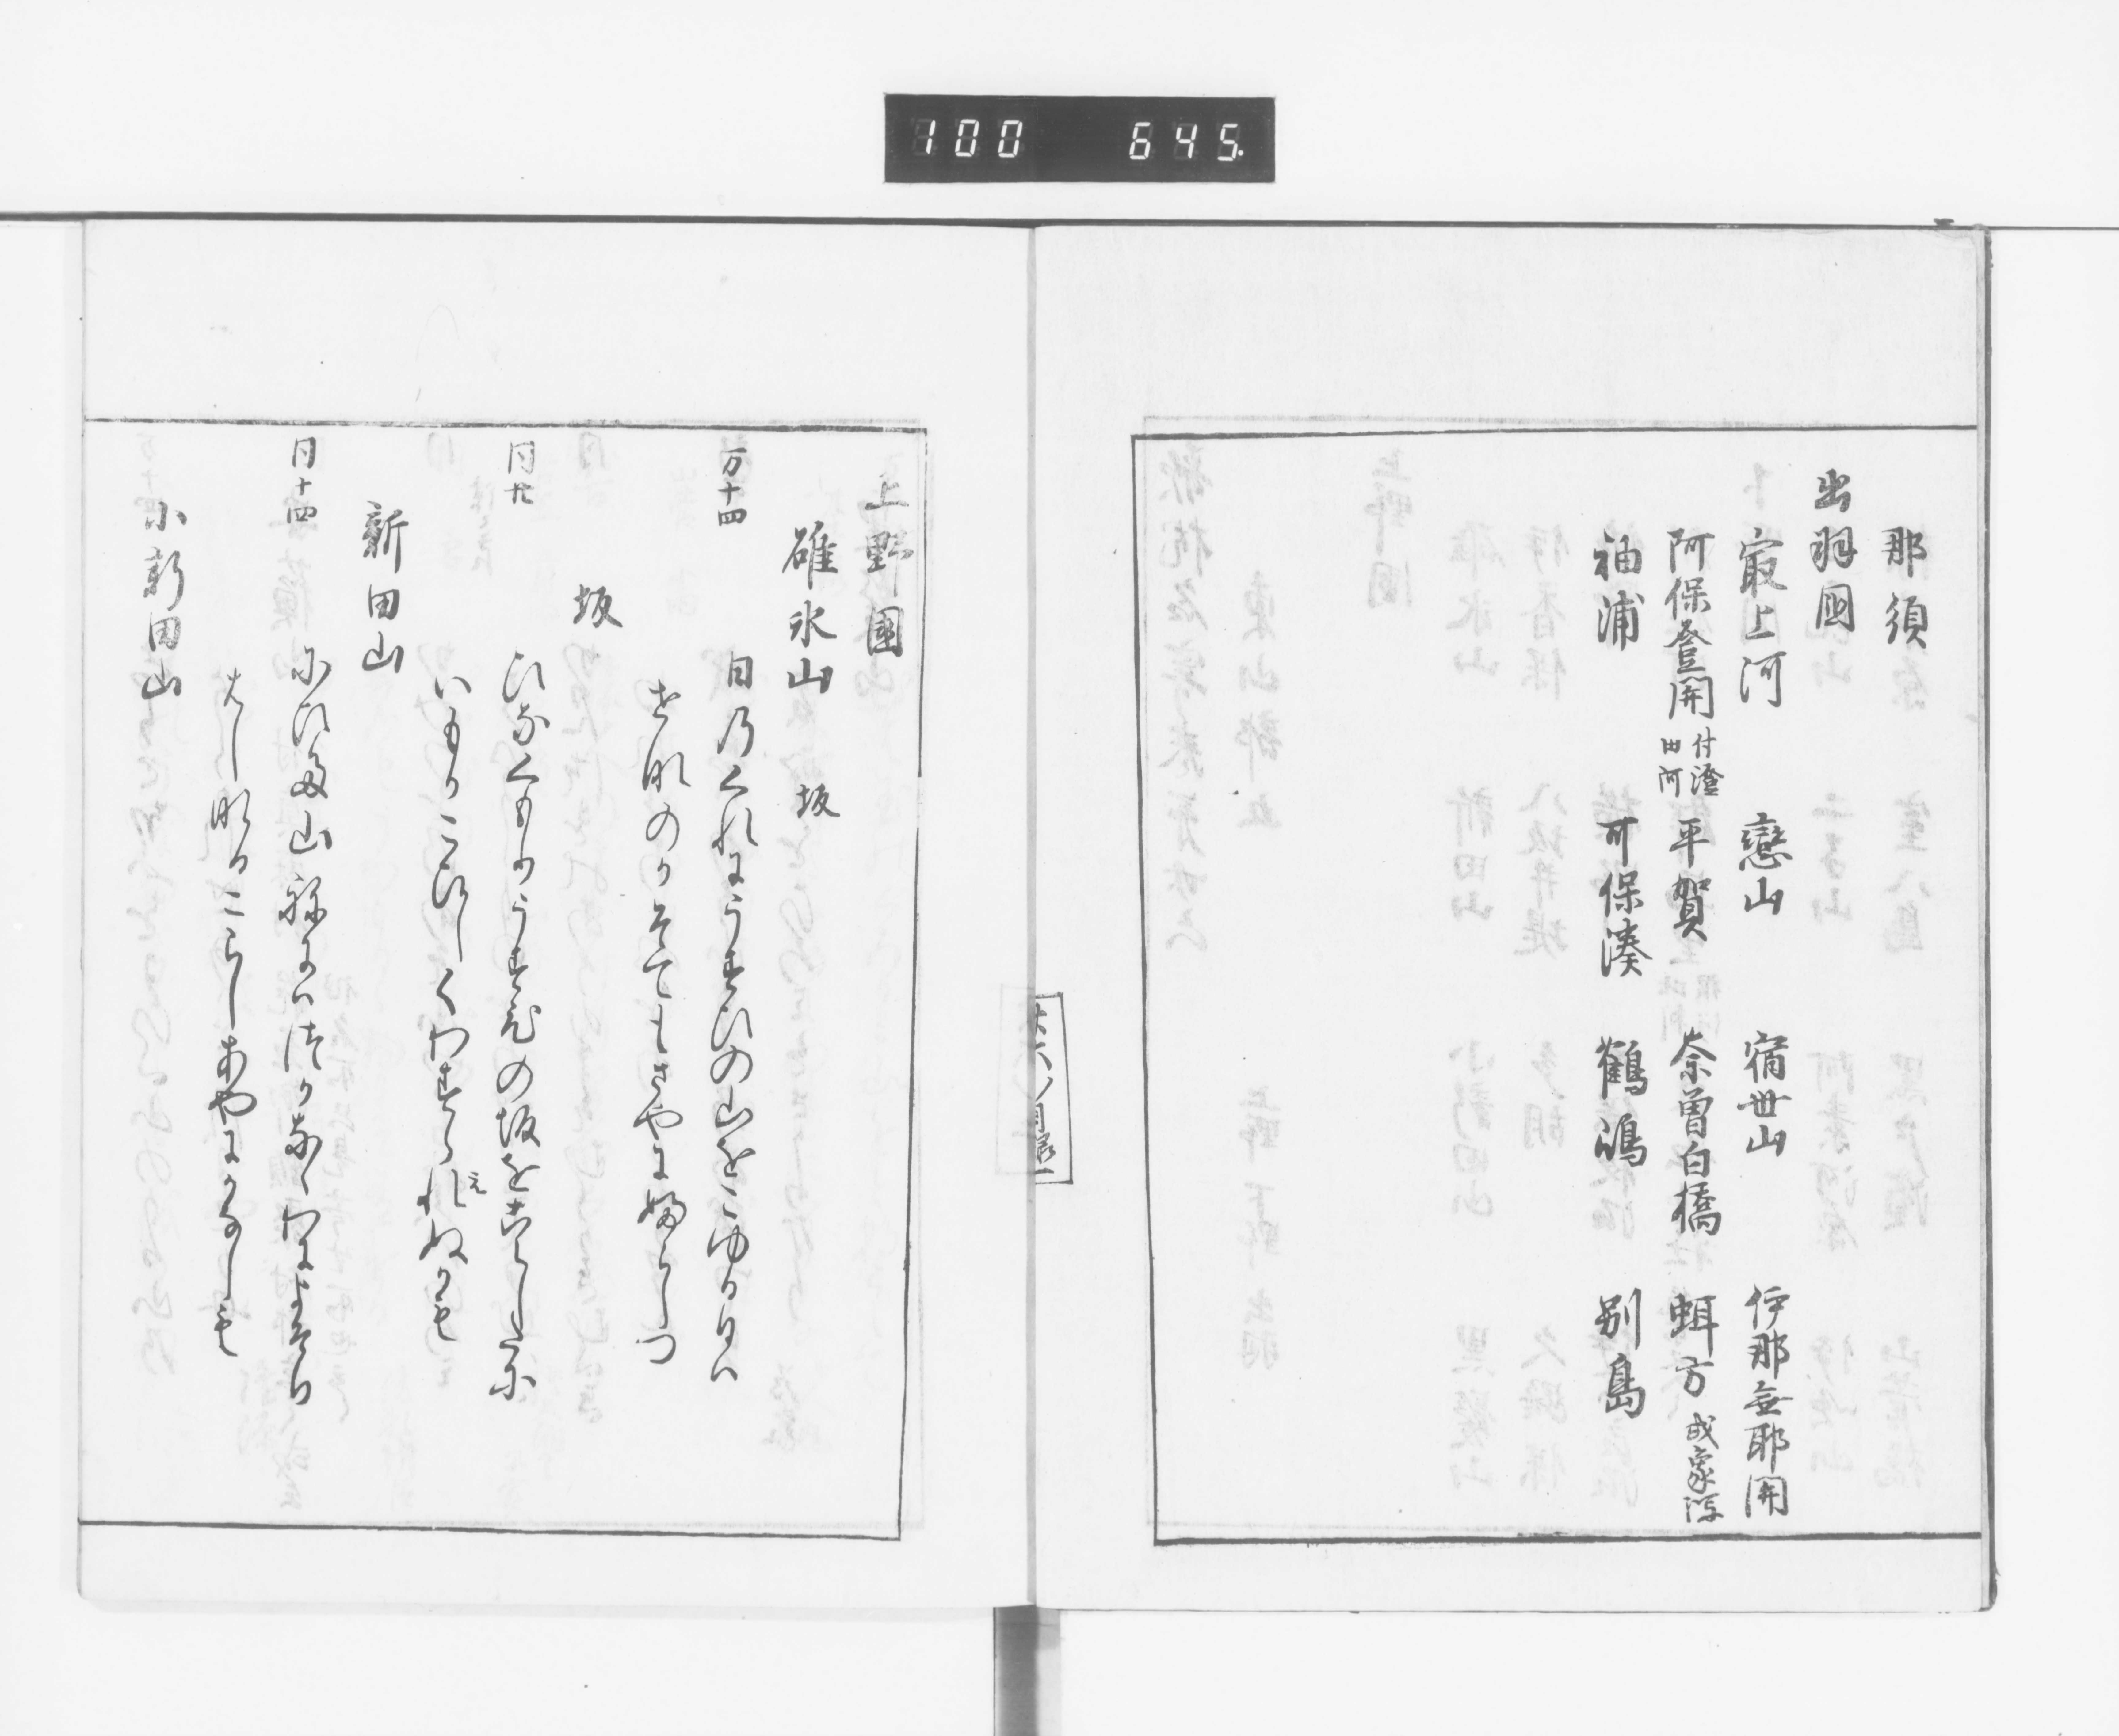 100 645
那須
出羽國
㝡上河 戀山 宿世山 伊那無耶関
阿保登関 付澄田河 平賀 奈曽白橋 蛘方 或象潟
袖浦 可保湊 鶴嶋 別島
廿六ノ目録
上野國
碓氷山 坂
万十四 日のくれにうすひの山をこゆる日は
せなのかそてもさやにふらしつ
坂
同廿 ひなくもりうすひの坂をこえしたに
いもかこひしくわすられぬかも
え
新田山
同十四 にひた山ねにはつかなゝわによそり
はしなるこらしあやにかなしも
小新田山